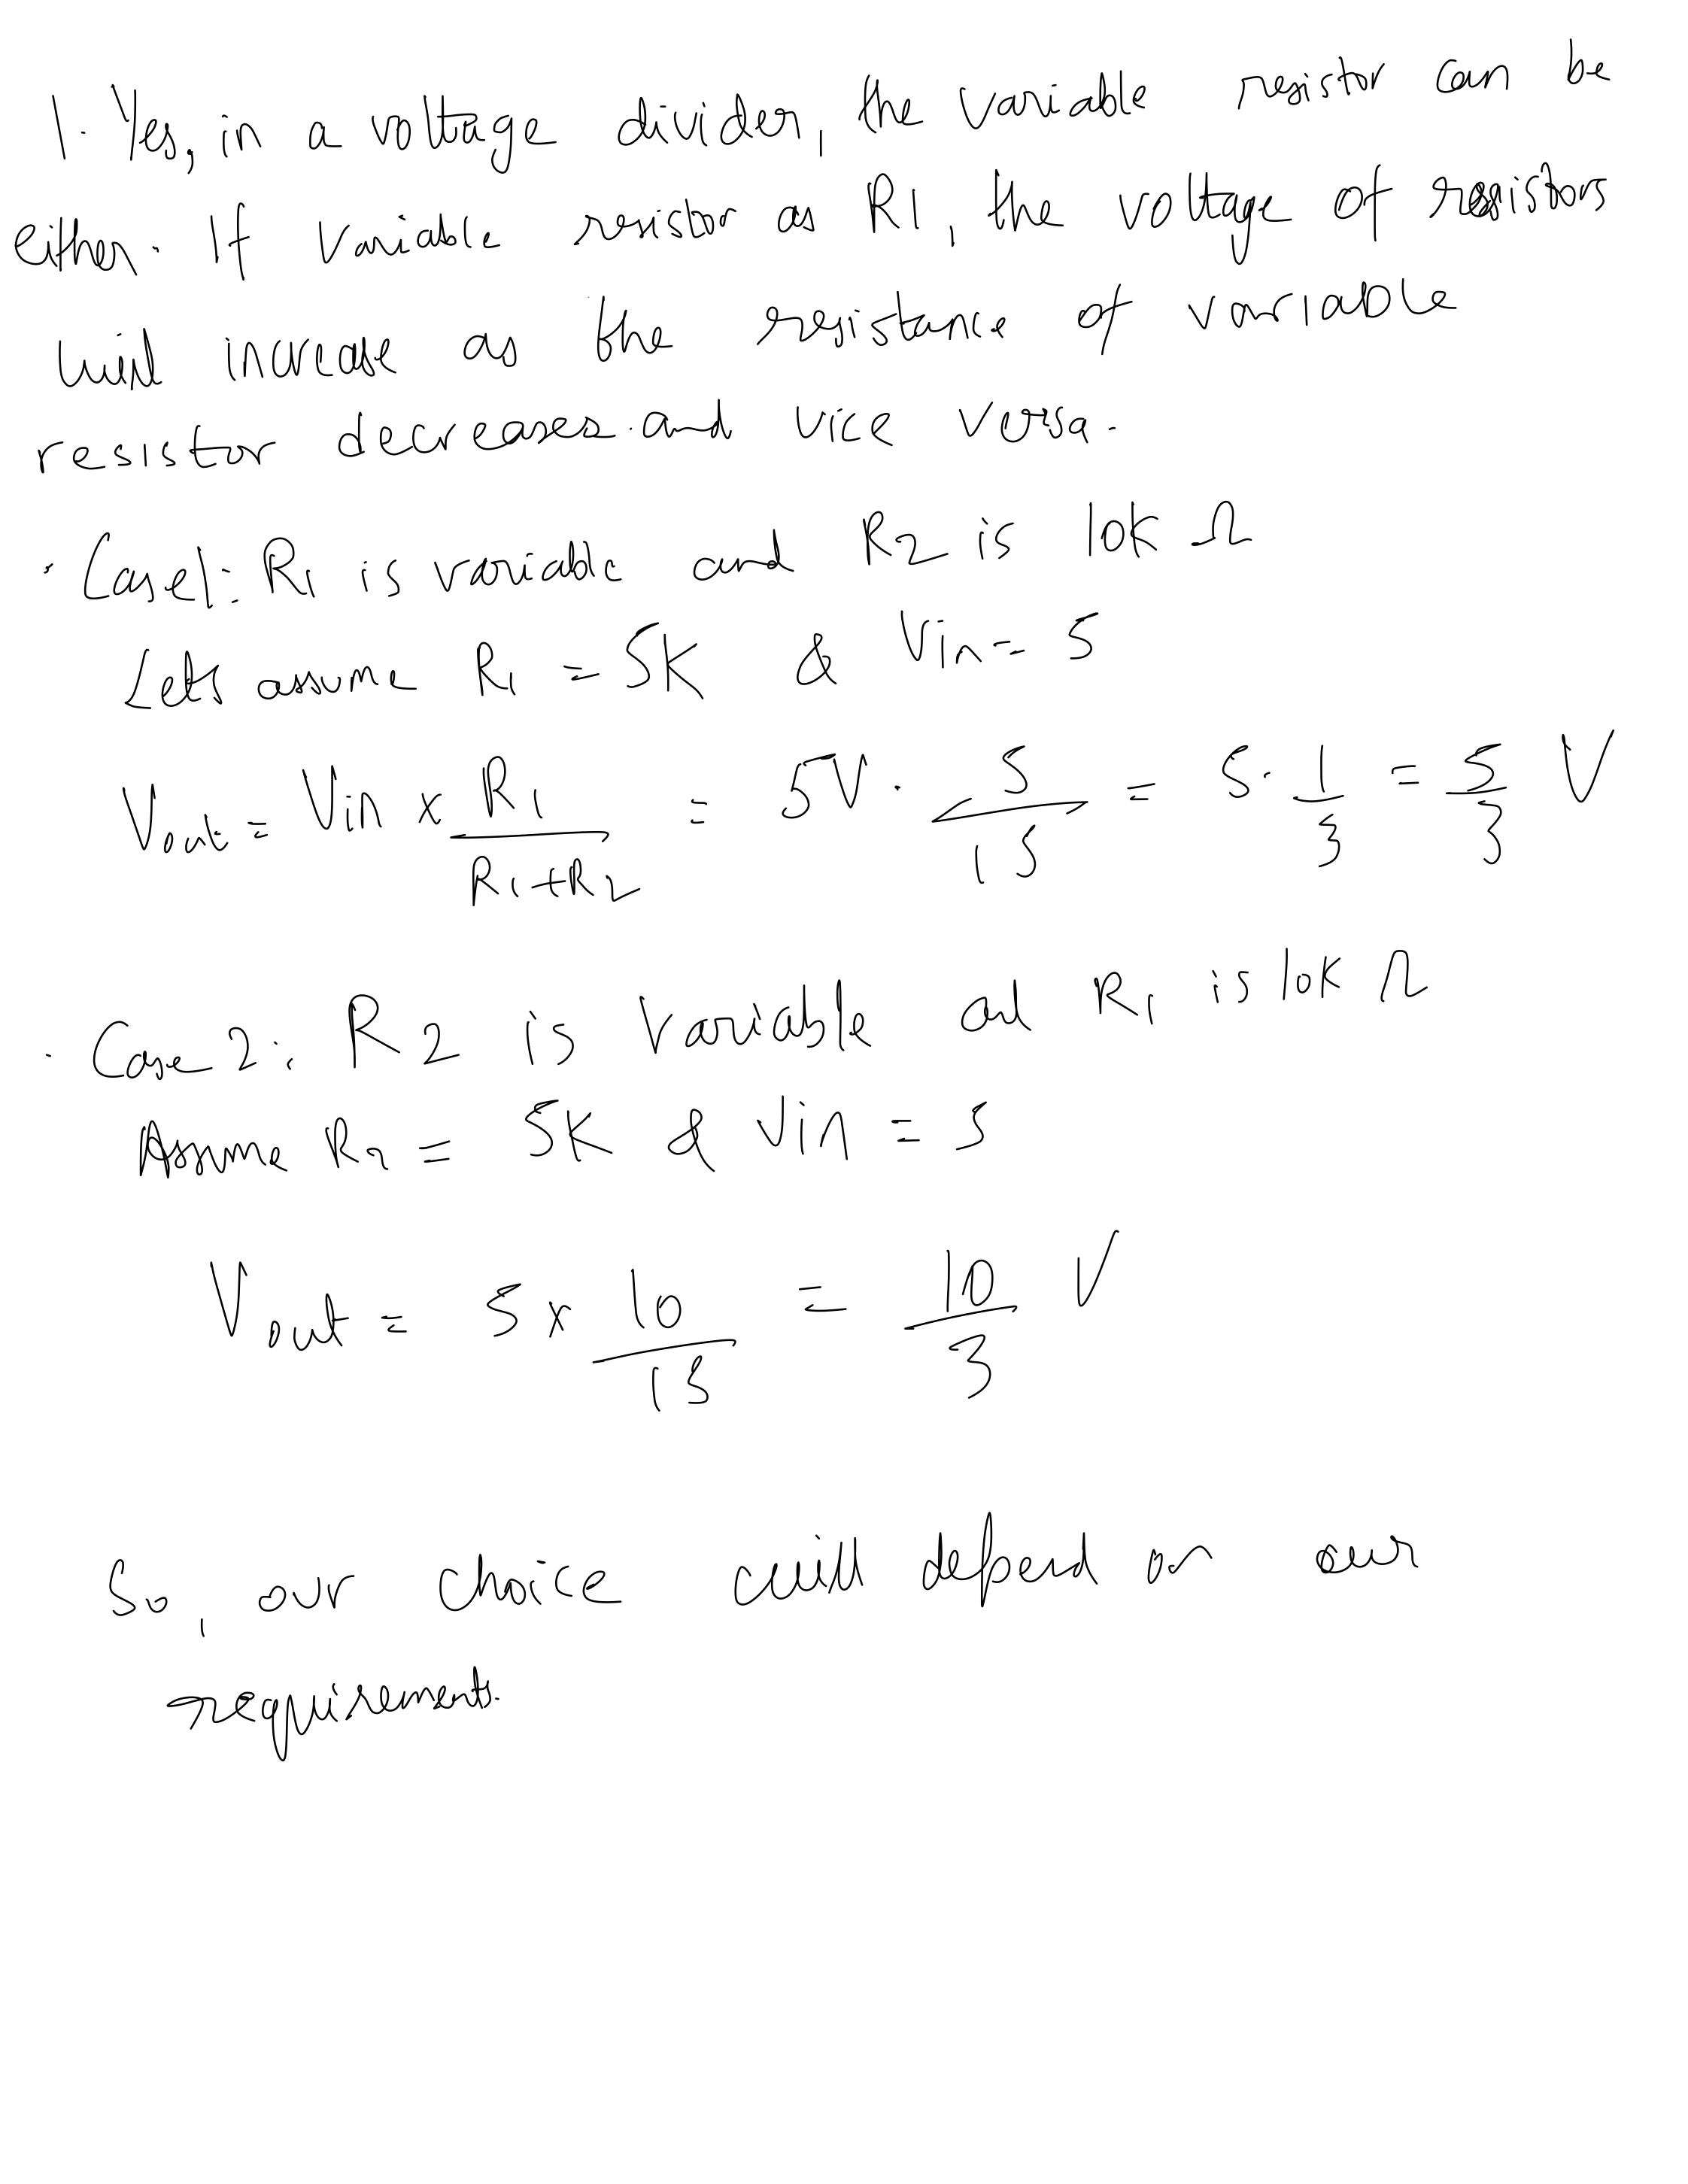 1. Yes, in a voltage divider, the variable resistor can be
either. If variable resistor as R1, the voltage of resistors
will increase as the resistance of variable
resistor decreases and vice versa.
· Case1: R1 is variable and R2 is 10k Ω
Lets assume R1 = 5K & Vin = 5
Vout = Vin x R1/(R1+R2) = 5V · 5/15 = 5 · 1/3 = 5/3 V
· Case 2: R2 is Variable ad R1 is 10k Ω
Assume R2 = 5K & Vin = 5
Vout = 5 x 10/15 = 10/3 V
So, our choice will depend on our
requirements.